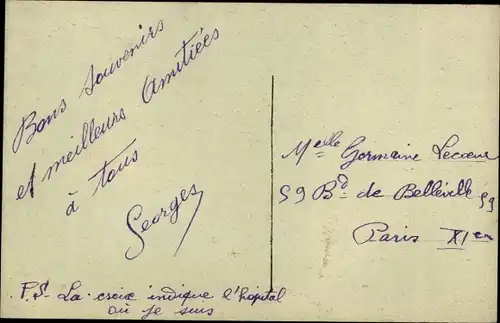 Bons Souvenirs
et meilleurs Amitiées
à tous
Georges
P.S- La croix indique l'hopital
où je suis
Melle Germaine Lecoeur
59 Bd de Belleville 59
Paris XIer